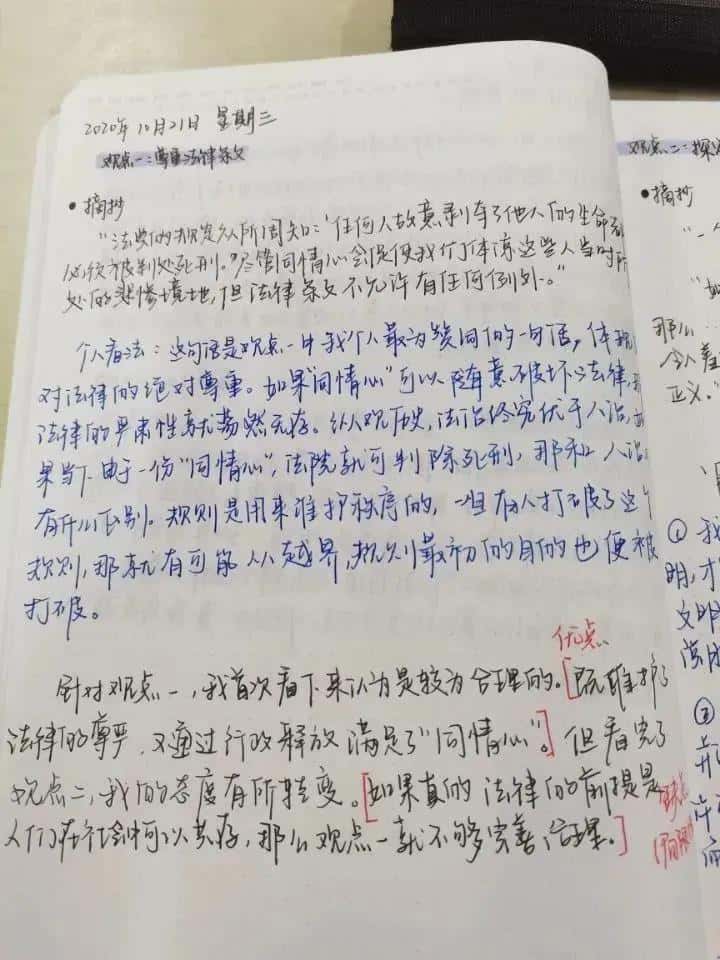 2020年10月21日 星期三
观点一：尊重法律条文
• 摘抄
“法典的规定众所周知：‘任何人故意剥夺了他人的生命都
必须被判处死刑。’尽管同情心会促使我们体谅这些人当时所
处的悲惨境地，但法律条文不允许有任何例外。”
个人看法：这句话是观点一中我个人最为赞同的一句话，体现
对法律的绝对尊重。如果“同情心”可以随意破坏法律，
法律的严肃性就荡然无存。纵观历史，法治终究优于人治，如
果当下由于一份“同情心”，法院就可判除死刑，那和人治
有什么区别。规则是用来维护秩序的，一旦有人打破了这个
规则，那就有可能人人越界，规则最初的目的也便被
打破。
优点
针对观点一，我首次看下来认为是较为合理的。[既维护了
法律的尊严，又通过行政释放满足了“同情心”。]但看完了
观点二，我的态度有所转变。[如果真的法律的前提是
人们在社会中可以共存，那么观点一就不够完善合理。]
缺点
观点二：探
• 摘抄
“一个
“如
那么
令人羞
正义。”
① 我
明，才
文明
②